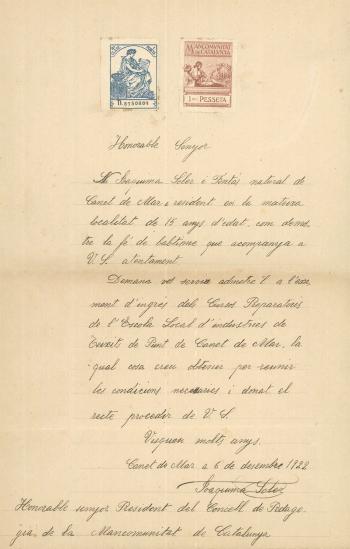 D.8750804
MANCOMUNITAT
DE CATALUNYA
1 PESSETA
Honorable Senyor
Na Joaquima Soler i Pentas natural de
Canet de Mar i resident en la mateixa
localitat de 15 anys d'edat, com demos-
tre la fe de babtisme que acompanya a
V.S. atentament
Demana vol servir admetre'l a l'exa-
ment d'ingrés dels Cursos Preparatoris
de l'Escola Local d'industries de
Teixit de Punt de Canet de Mar, la
qual cosa creu obtenir per reunir
les condicions necesaries i donat el
recte procedir de V.S.
Visqueu molts anys.
Canet de Mar a 6 de desembre 1922
Joaquima Soler
Honorable senyor President del Concell de Pedago
gia, de la Mancomunitat de Catalunya